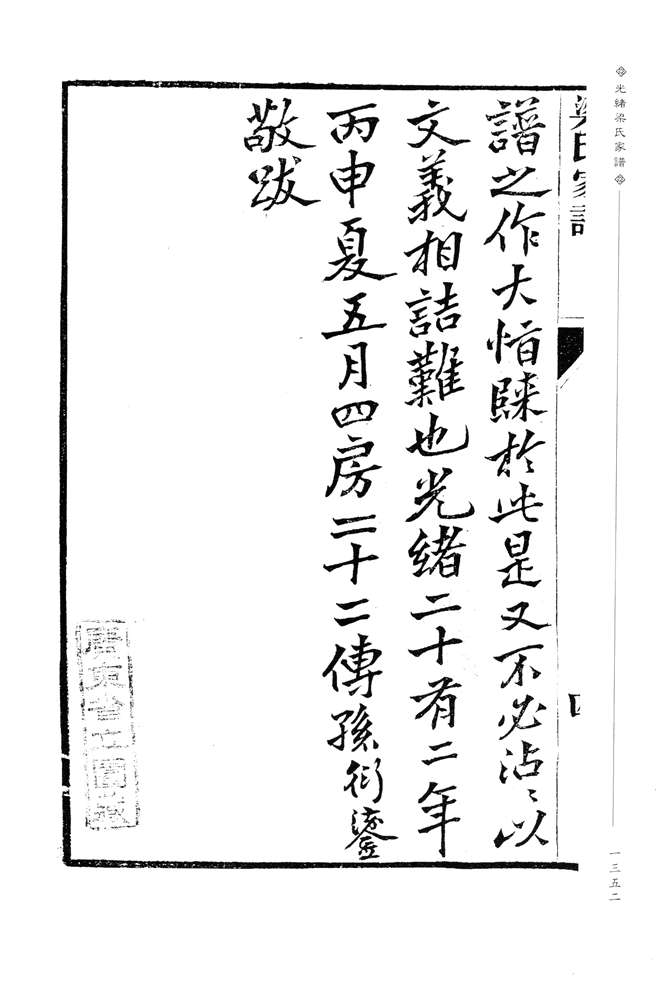 光緒梁氏家譜
一三五二
梁氏家譜
四
譜之作大恉睐於此是又不必沾〻以
文義相詰難也光緒二十有二年
丙申夏五月四房二十二傳孫衍鎏
敬跋